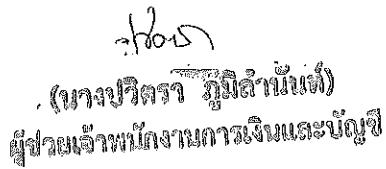 (นางปวิตรา ภูมิลำนันท์)
ผู้ช่วยเจ้าพนักงานการเงินและบัญชี